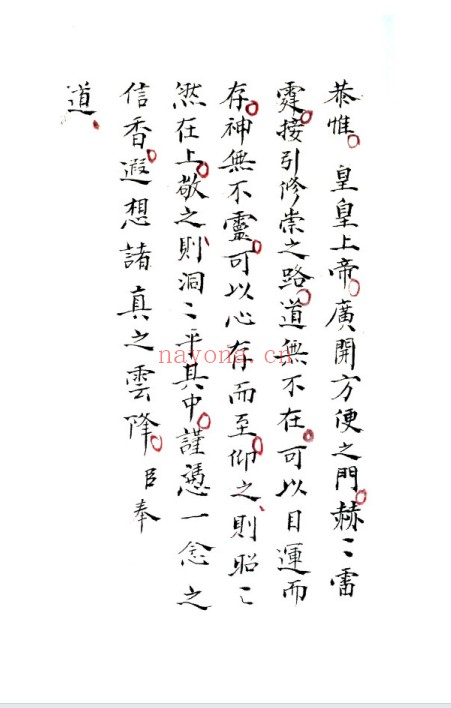 恭惟。皇皇上帝。廣開方便之門。赫〻雷
霆。接引修崇之路。道無不在。可以目運而
存。神無不靈。可以心存而至。仰之、則昭〻
然在上。敬之、則洞〻乎其中。謹憑一念之
信香。遐想諸真之雲降。臣奉
道、
nayona.cn